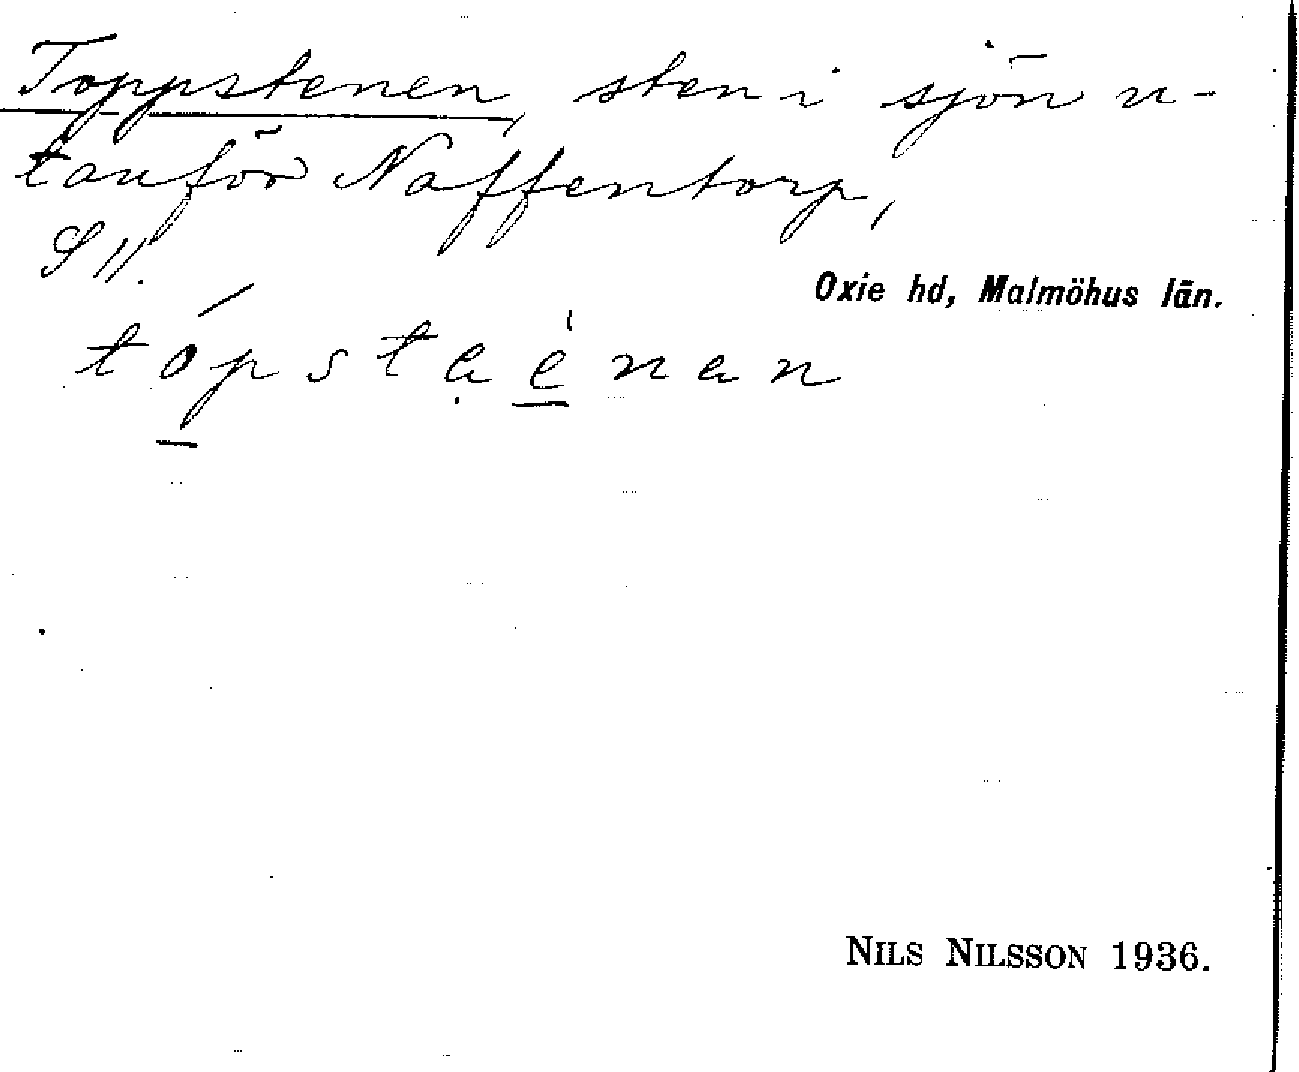 Toppstenen, sten i sjön u-
tanför Naffentorp,
S 11.
Oxie hd, Malmöhus län.
tópstaènan
NILS NILSSON 1936.